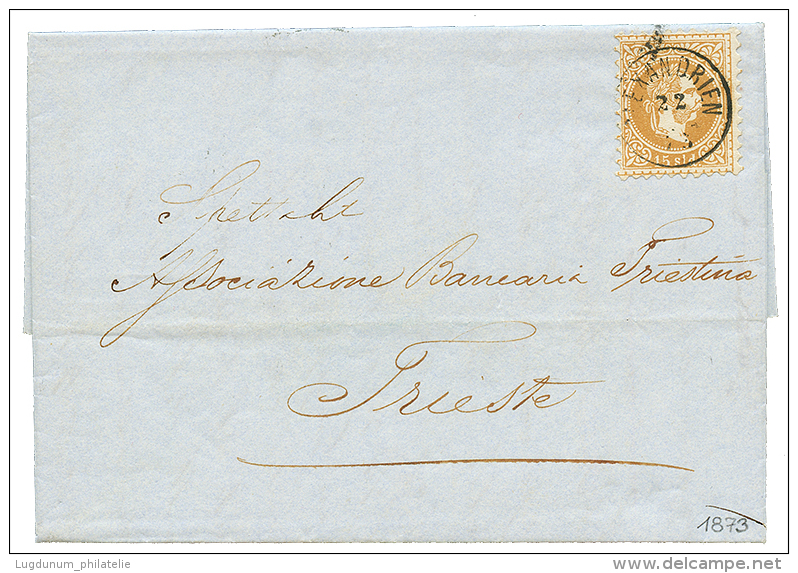 ALEXANDRIEN
22
15 sld
Spettabl
Associazione Bancaria Triestina
Trieste
1873
Lugdunum_philatelie
delcampe.net